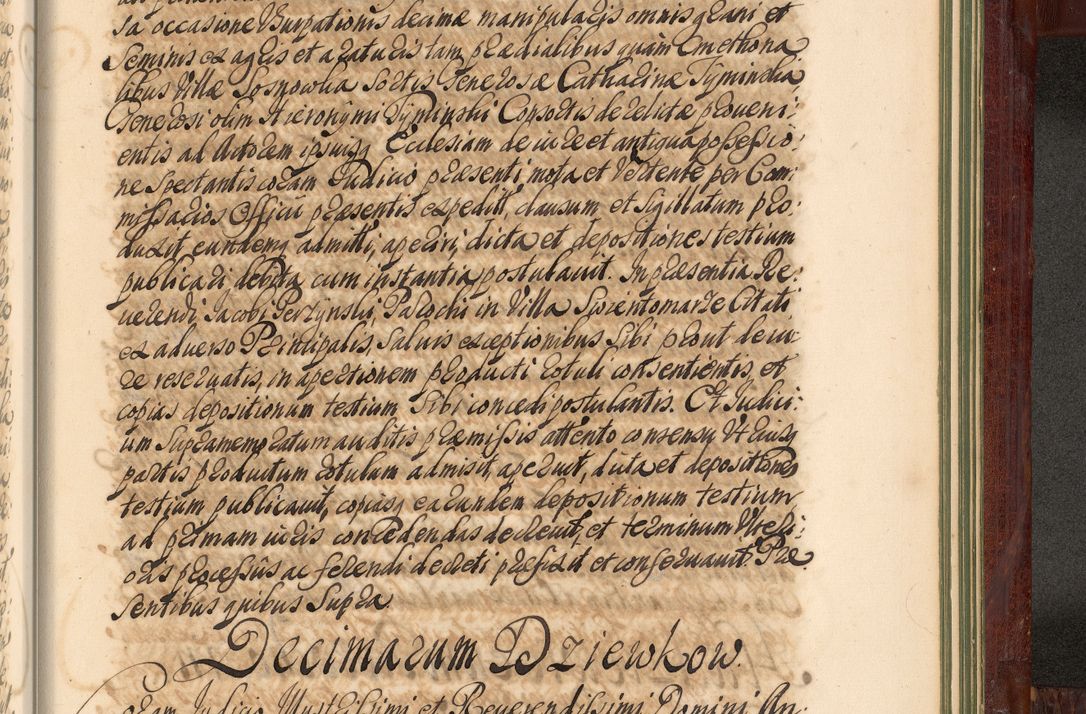 sa occasione Usurpationis decimæ manipularis omnis grani et
Seminis ex agris et araturis tam prædialibus quàm Cmethona
libus Villæ Sosnowka Sortis Generosæ Catharinæ Tyminska
Generosi olim Hieronymi Tyminski Consortis derelictæ proveni:
entis ad Actorem ipsiusq Ecclesiam de iure et antiqua possessio:
ne Spectantis coram Judicio præsenti mota et Vertente per Com:
missarios Officii præsentis expediti, clausum et Sigillatum pro:
duxit, eundemq admitti, aperiri, dicta et depositiones testium
publicari debita cum instantia postulavit. In præsentia Re:
verendi Jacobi Perzynski, Parochi in Villa Swientomarze Citati
ex adverso Principalis Salvis exceptionibus Sibi prout de iu:
re reservatis, in apertionem producti rotuli consentientis, et
copias depositionum testium Sibi concedi postulantis. Et Judici:
um Supramemoratum auditis præmissis attento consensu Utriusq
partis productum rotulum admisit, aperuit, dicta et depositiones
testium publicavit, copiasq earundem depositionum testium
ad primam iuris concedendas decrevit, et terminum Ulteri:
oris processûs ac ferendi decreti præfixit et conservavit. Præ
sentibus quibus Supra.
Decimarum Dziewkow.
Coram Judicio Illustrissimi et Reverendissimi Domini An: